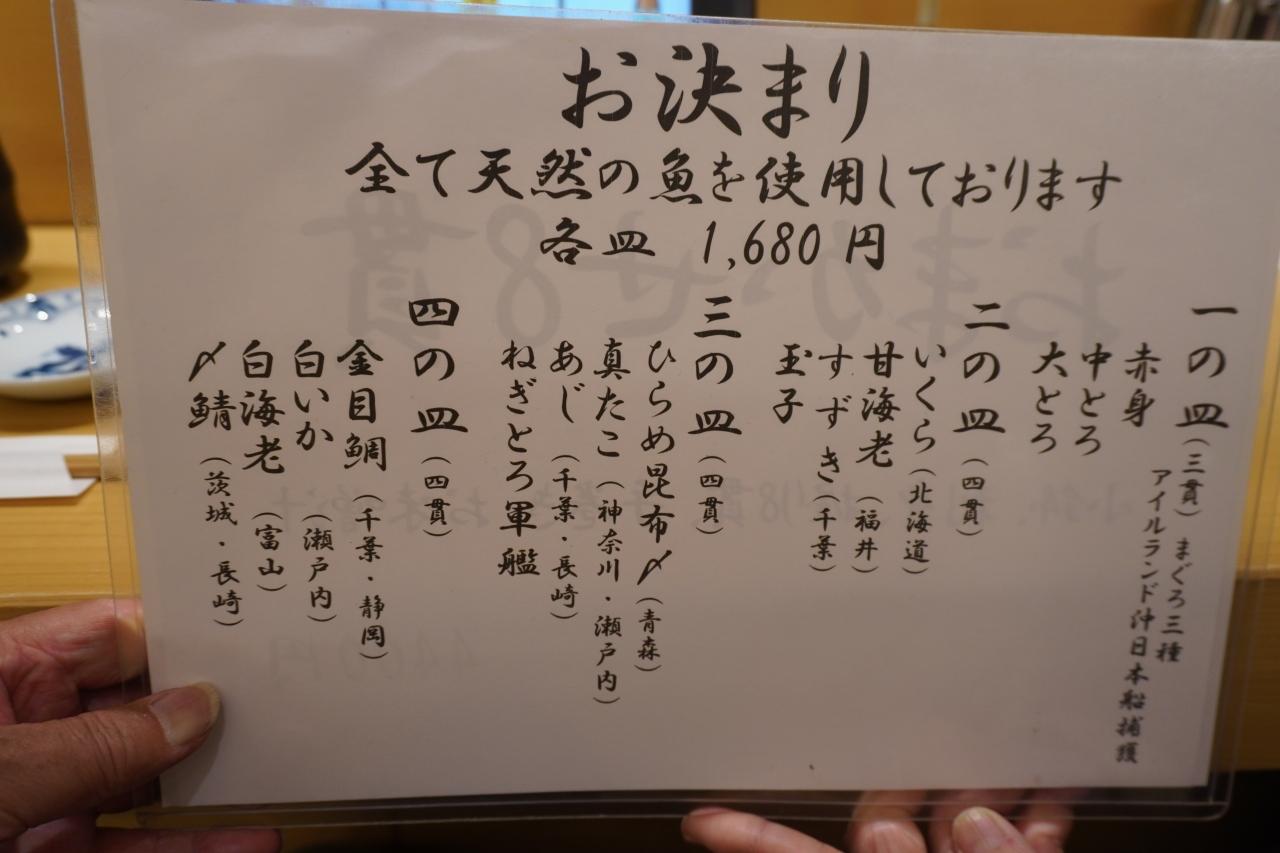 お決まり
全て天然の魚を使用しております
各皿 1,680 円
一の皿(三貫) まぐろ三種
アイルランド沖日本船捕獲
赤身
中とろ
大とろ
二の皿(四貫)
いくら(北海道)
甘海老(福井)
すずき(千葉)
玉子
三の皿(四貫)
ひらめ昆布〆(青森)
真たこ(神奈川・瀬戸内)
あじ(千葉・長崎)
ねぎとろ軍艦
四の皿(四貫)
金目鯛(千葉・静岡)
白いか(瀬戸内)
白海老(富山)
〆鯖(茨城・長崎)
おまかせ8貫